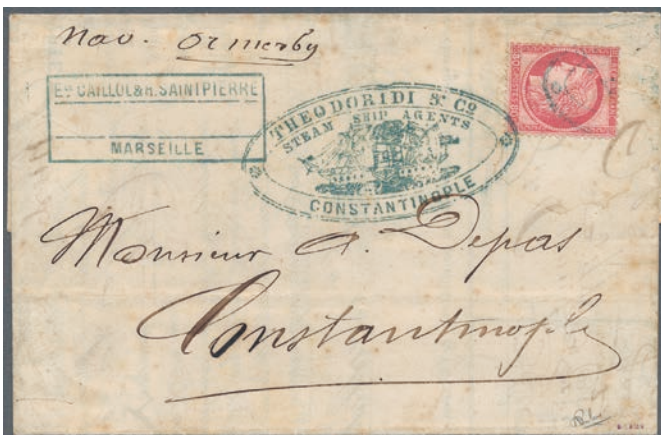 Nav. Ormerby
Ed. CAILLOL & H. SAINTPIERRE
MARSEILLE
THEODORIDI & Co
STEAM SHIP AGENTS
CONSTANTINOPLE
Monsieur A. Depas
Constantinople